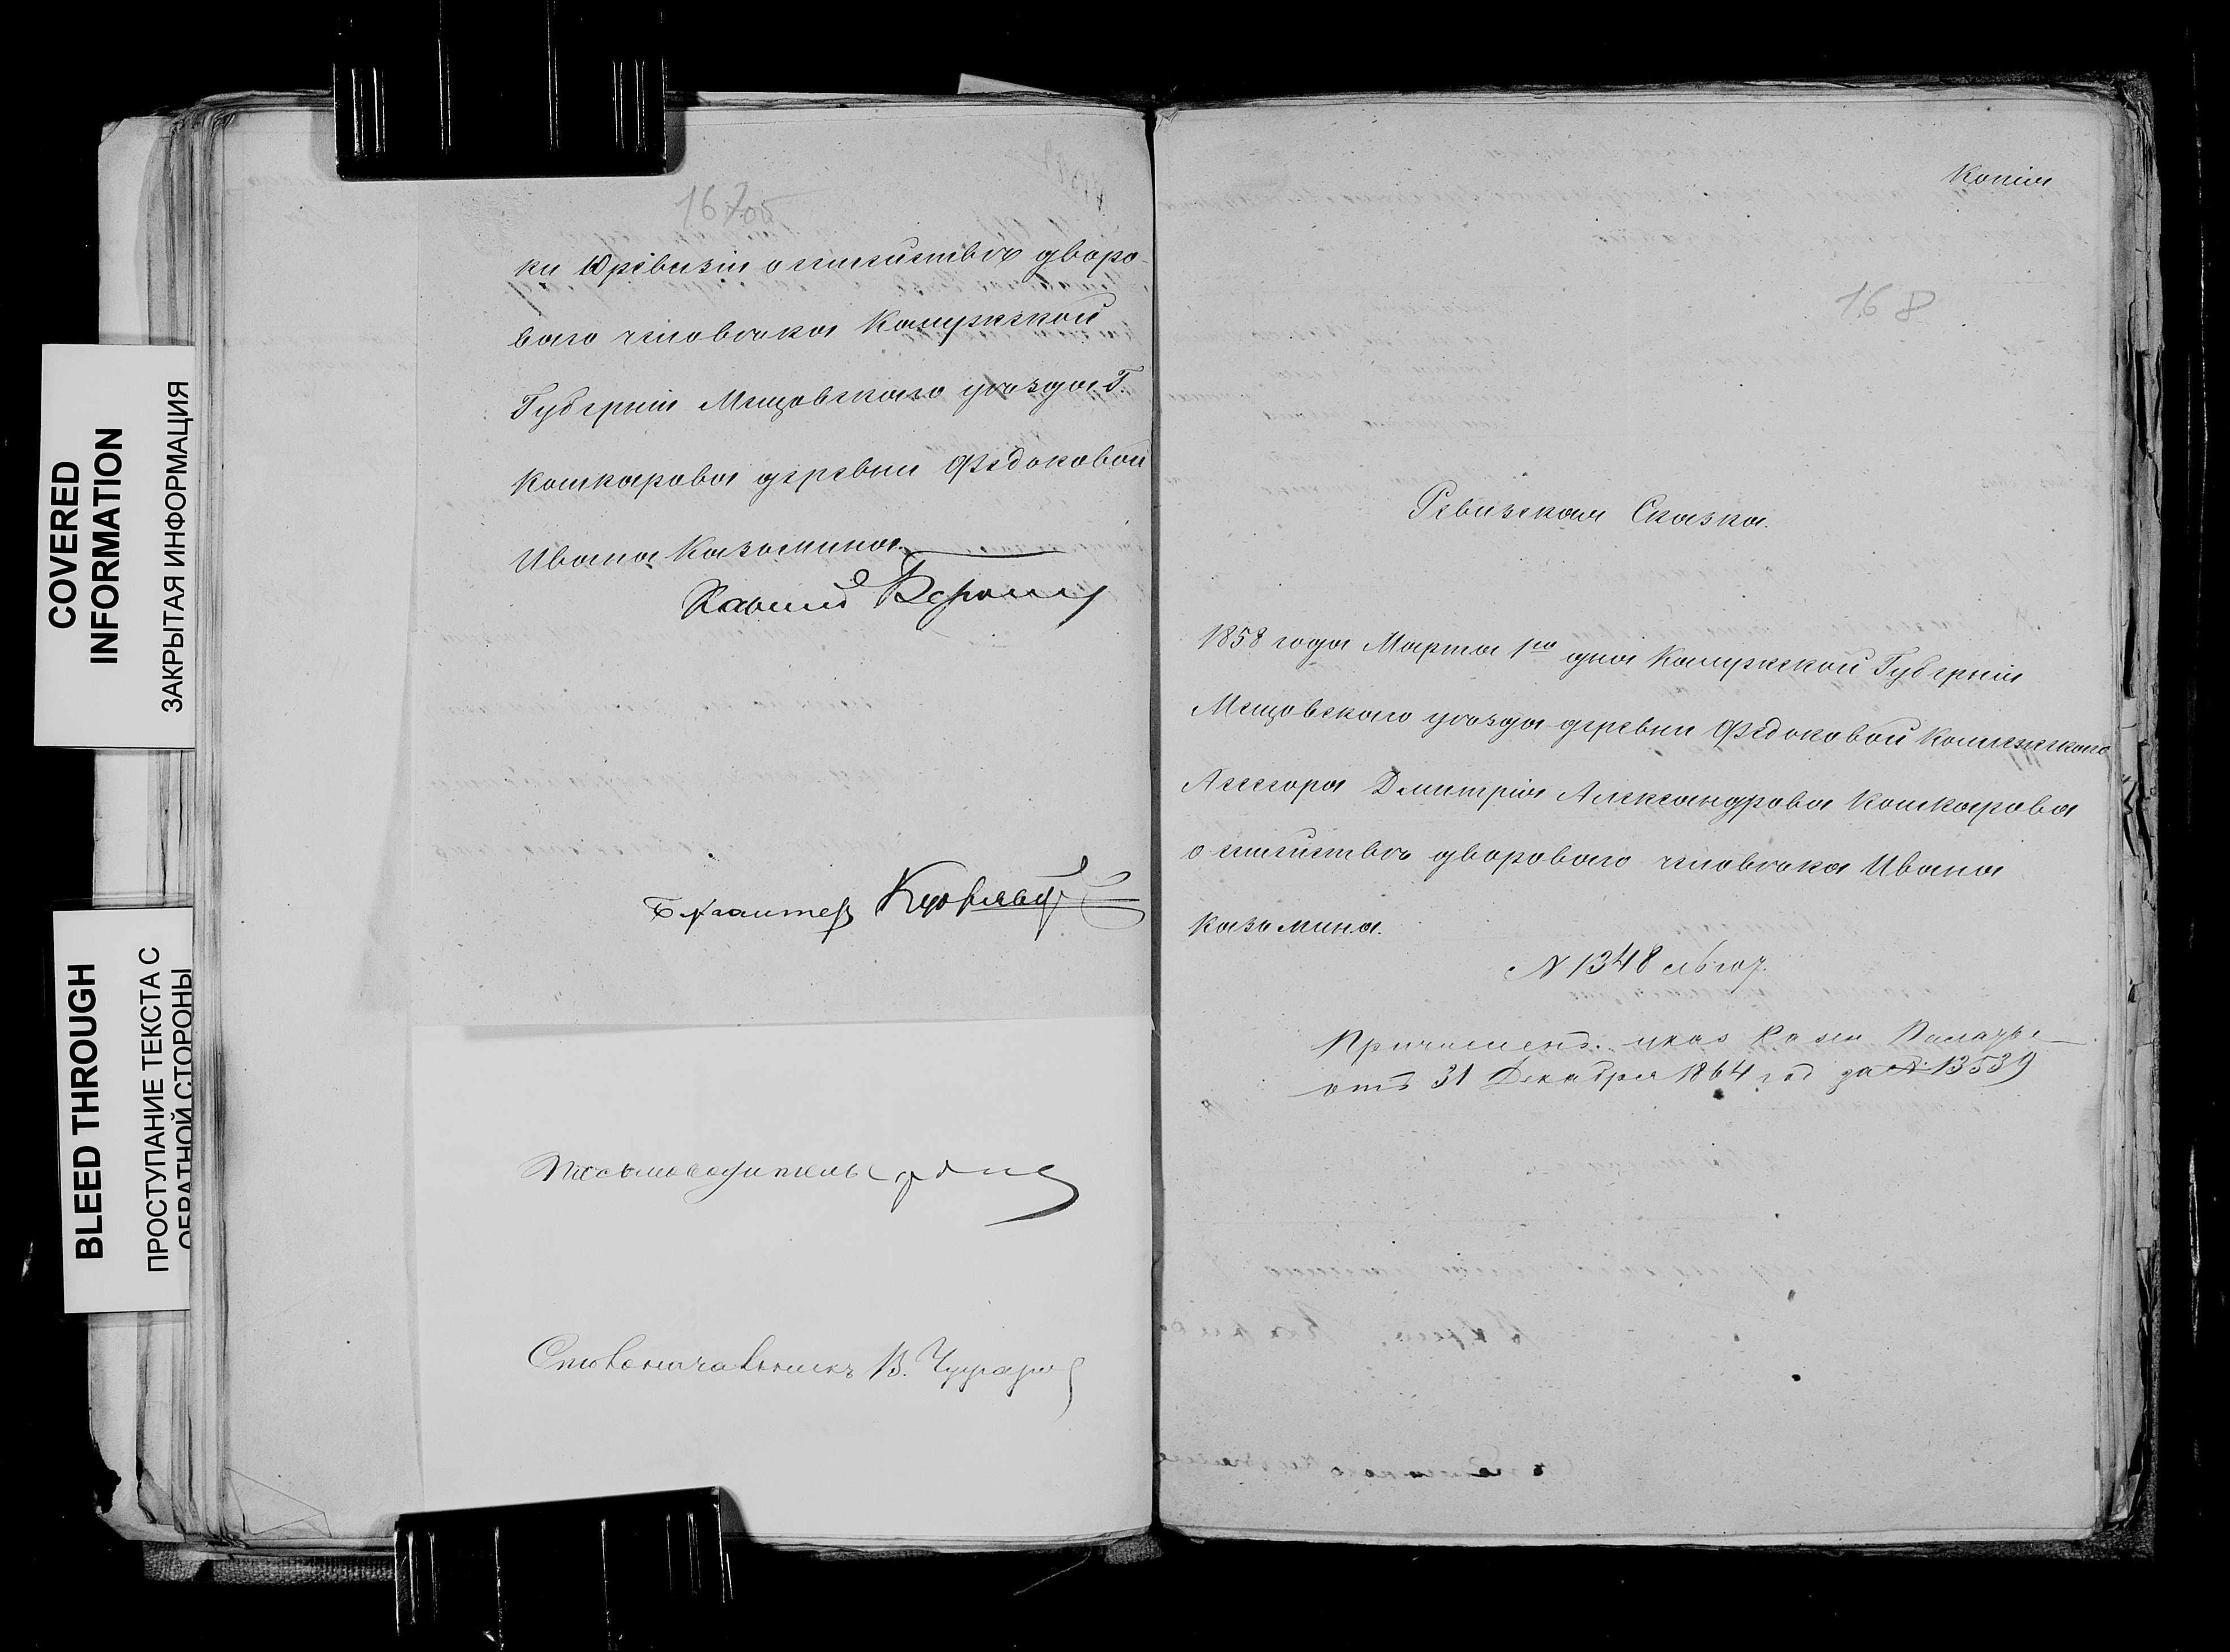 COVERED
INFORMATION
ЗАКРЫТАЯ ИНФОРМАЦИЯ
BLEED THROUGH
ПРОСТУПАНИЕ ТЕКСТА С
ОБРАТНОЙ СТОРОНЫ
167об
ки 10 ревизіи о семействѣ дворо-
ваго человѣка Калужской
Губерніи Мещовскаго уѣзда Г.
Кошкарова деревни Ѳедоковой
Ивана Казьмина.
Бухгалтер
Письмоводитель
Столоначальникъ В.
Копія
168
Ревизская Сказка.
1858 года Марта 1го дня Калужской Губерніи
Мещовскаго уѣзда деревни Ѳедоковой Коллежскаго
Асесора Дмитрія Александрова Кошкарова
о семействѣ двороваго человѣка Ивана
Казьмина.
N 1348
Причислен. указ Казен Палаты
отъ 31 Декабря 1864 год за № 13539